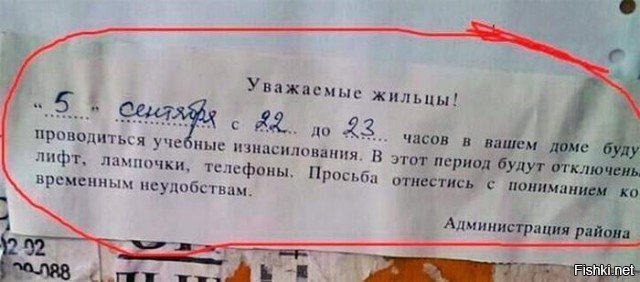 Уважаемые жильцы!
“ 5 ” сентября с 22 до 23 часов в вашем доме буду
проводиться учебные изнасилования. В этот период будут отключены
лифт, лампочки, телефоны. Просьба отнестись с пониманием ко
временным неудобствам.
Администрация района
12 02
Fishki.net